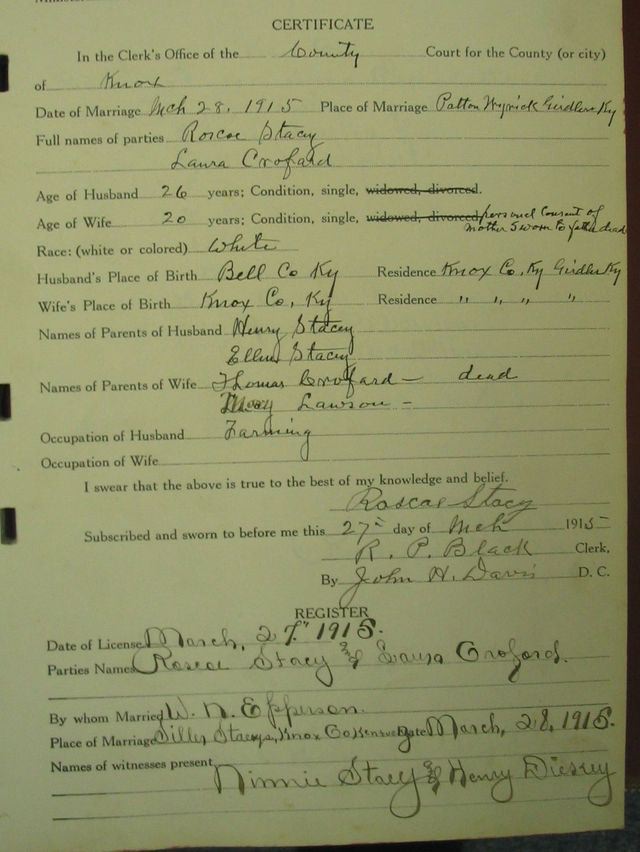 CERTIFICATE
In the Clerk's Office of the County Court for the County (or city)
of Knox
Date of Marriage Mch 28, 1915 Place of Marriage Patton Girdler Ky
Full names of parties Roscoe Stacy
Laura Crofard
Age of Husband 26 years; Condition, single, widowed, divorced.
Age of Wife 20 years; Condition, single, widowed, divorced personal Consent of
mother Sworn to father dead
Race: (white or colored) White
Husband's Place of Birth Bell Co Ky Residence Knox Co, Ky Girdler Ky
Wife's Place of Birth Knox Co, Ky Residence " " " "
Names of Parents of Husband Henry Stacey
Ellen Stacey
Names of Parents of Wife Thomas Crofard - dead
Lawson -
Occupation of Husband Farming
Occupation of Wife
I swear that the above is true to the best of my knowledge and belief.
Roscoe Stacy
Subscribed and sworn to before me this 27 day of Mch 1915
R. P. Black Clerk,
By John H. Davis D. C.
REGISTER
Date of License March, 27" 1915.
Parties Names Roscoe Stacy & Laura Croford.
By whom Married W. N. Epperson.
Place of Marriage Stacys, Knox Co Date March, 28, 1915.
Names of witnesses present Stacy & Henry